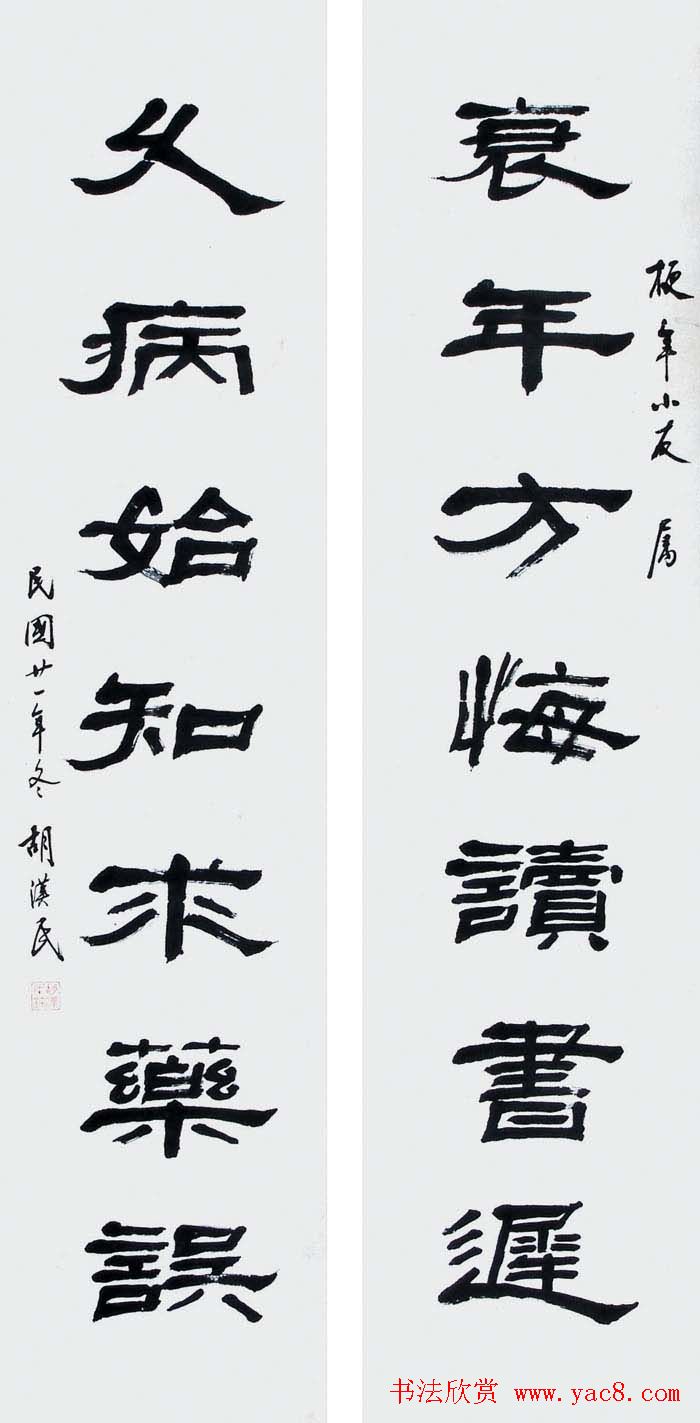 梗年小友 属
衰年方悔讀書遲
久病始知求藥誤
民國廿一年冬 胡漢民
书法欣赏 www.yac8.com